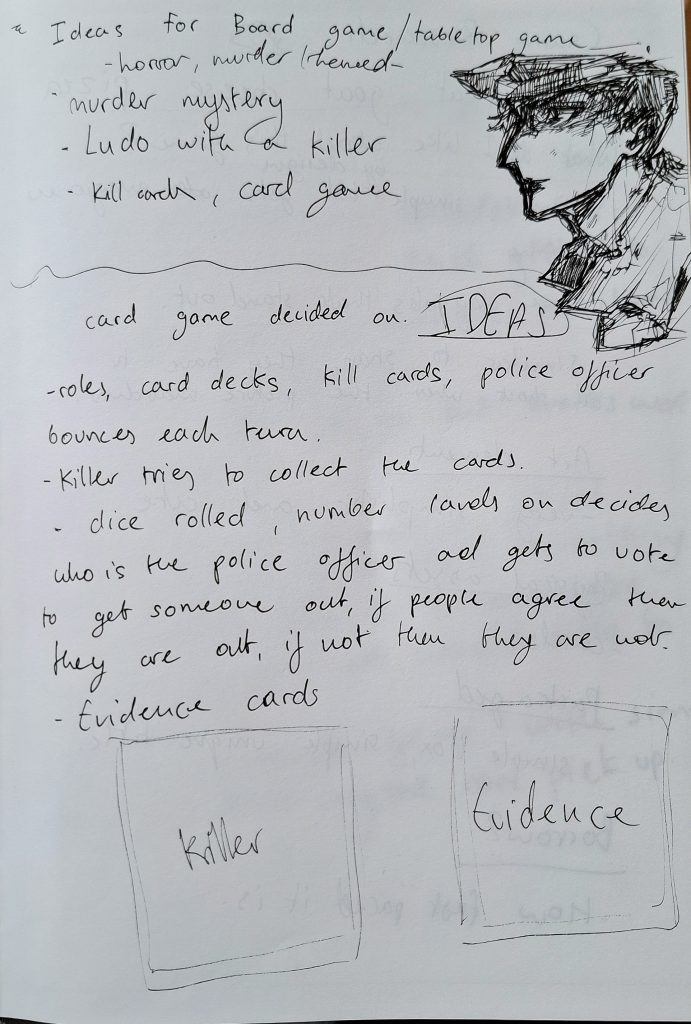 Ideas for Board game/tabletop game
-horror, murder themed-
- murder mystery
- Ludo with a killer
- kill cards, card game
card game decided on. IDEAS
-roles, card decks, kill cards, police officer
bounces each turn.
- Killer tries to collect the cards.
- dice rolled, number lands on decides
who is the police officer ad gets to vote
to get someone out, if people agree then
they are out, if not then they are not.
- Evidence cards
Evidence
Killer